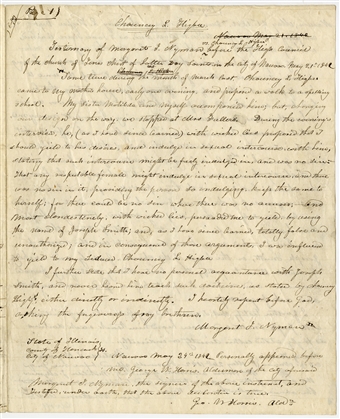 Chauncy L Higbee
Nauvoo May 21, 1842
Testimony of Margaret J. Nyman vs Chauncy L. Higbee before the High Council
of the church of Jesus Christ of Latter Day Saints in the city of Nauvoo May 21st 1842
Some time during the month of March last, Chauncy L. Higbee
came to my mother's house, early one evening, and proposed a walk to a spelling
school. My sister Matilda and myself accompanied him; but, changing
our design on the way, we stopped at Mrs. Fuller's. During the evening's
interview, he, (as I have since learned) with wicked lies proposed that I
should yield to his desires, and indulge in sexual intercourse with him,
stating that such intercourse might be freely indulged in, and was no sin:
That any respectable female might indulge in sexual intercourse, and there
was no sin in it, providing the person so indulging, keep the same to
herself; for there could be no sin where there was no accuser: and
most clandestinely, with wicked lies, persuaded me to yield by using
the name of Joseph Smith; and, as I have since learned, totally false and
unauthorized; and in consequence of those arguments, I was influenced
to yield to my seducer Chauncy L. Higbee.
I further say that I have no personal acquaintance with Joseph
Smith, and never heard him teach such doctrines, as stated by Chauncy
Higbee, either directly or indirectly. I heartily repent before God,
asking the forgiveness of my brethren.
Margaret J. Nyman
State of Illinois
County of Hancock
City of Nauvoo
Nauvoo May 24th 1842 Personally appeared before
me George W. Harris, Alderman of the city aforesaid
Margaret J. Nyman, the signer of the above instrument, and
testified under oath, that the above declaration is true.
Geo. W. Harris. Ald.